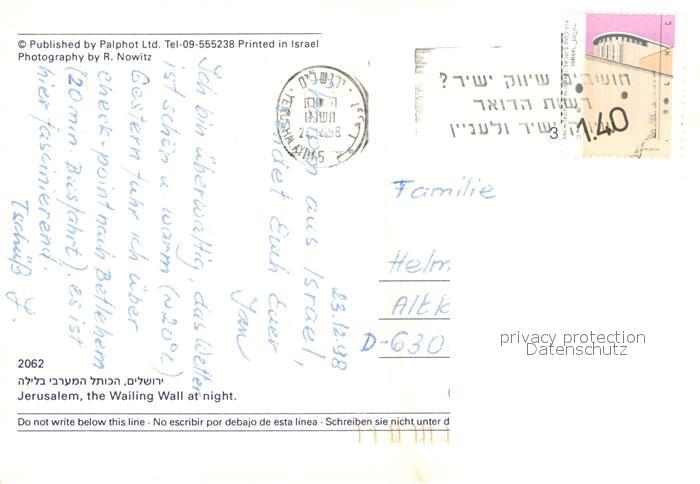 © Published by Palphot Ltd. Tel-09-555238 Printed in Israel
Photography by R. Nowitz
23.12.98
aus Israel,
Euch Euer
Jan
Ich bin überwältig, das Wetter
ist schön u. warm (~20°C)
Gestern fuhr ich über
check-point nach Betlehem
(20 min Busfahrt), es ist
hier faszinierend.
Tschüß J.
ירושלים
YERUSHALAYIM
חושבים שיווק ישיר?
רשות הדואר
ישיר ולעניין
3
1.40
Familie
Helm
Altk
D-630
privacy protection
Datenschutz
2062
ירושלים, הכותל המערבי בלילה
Jerusalem, the Wailing Wall at night.
Do not write below this line · No escribir por debajo de esta línea · Schreiben sie nicht unter d